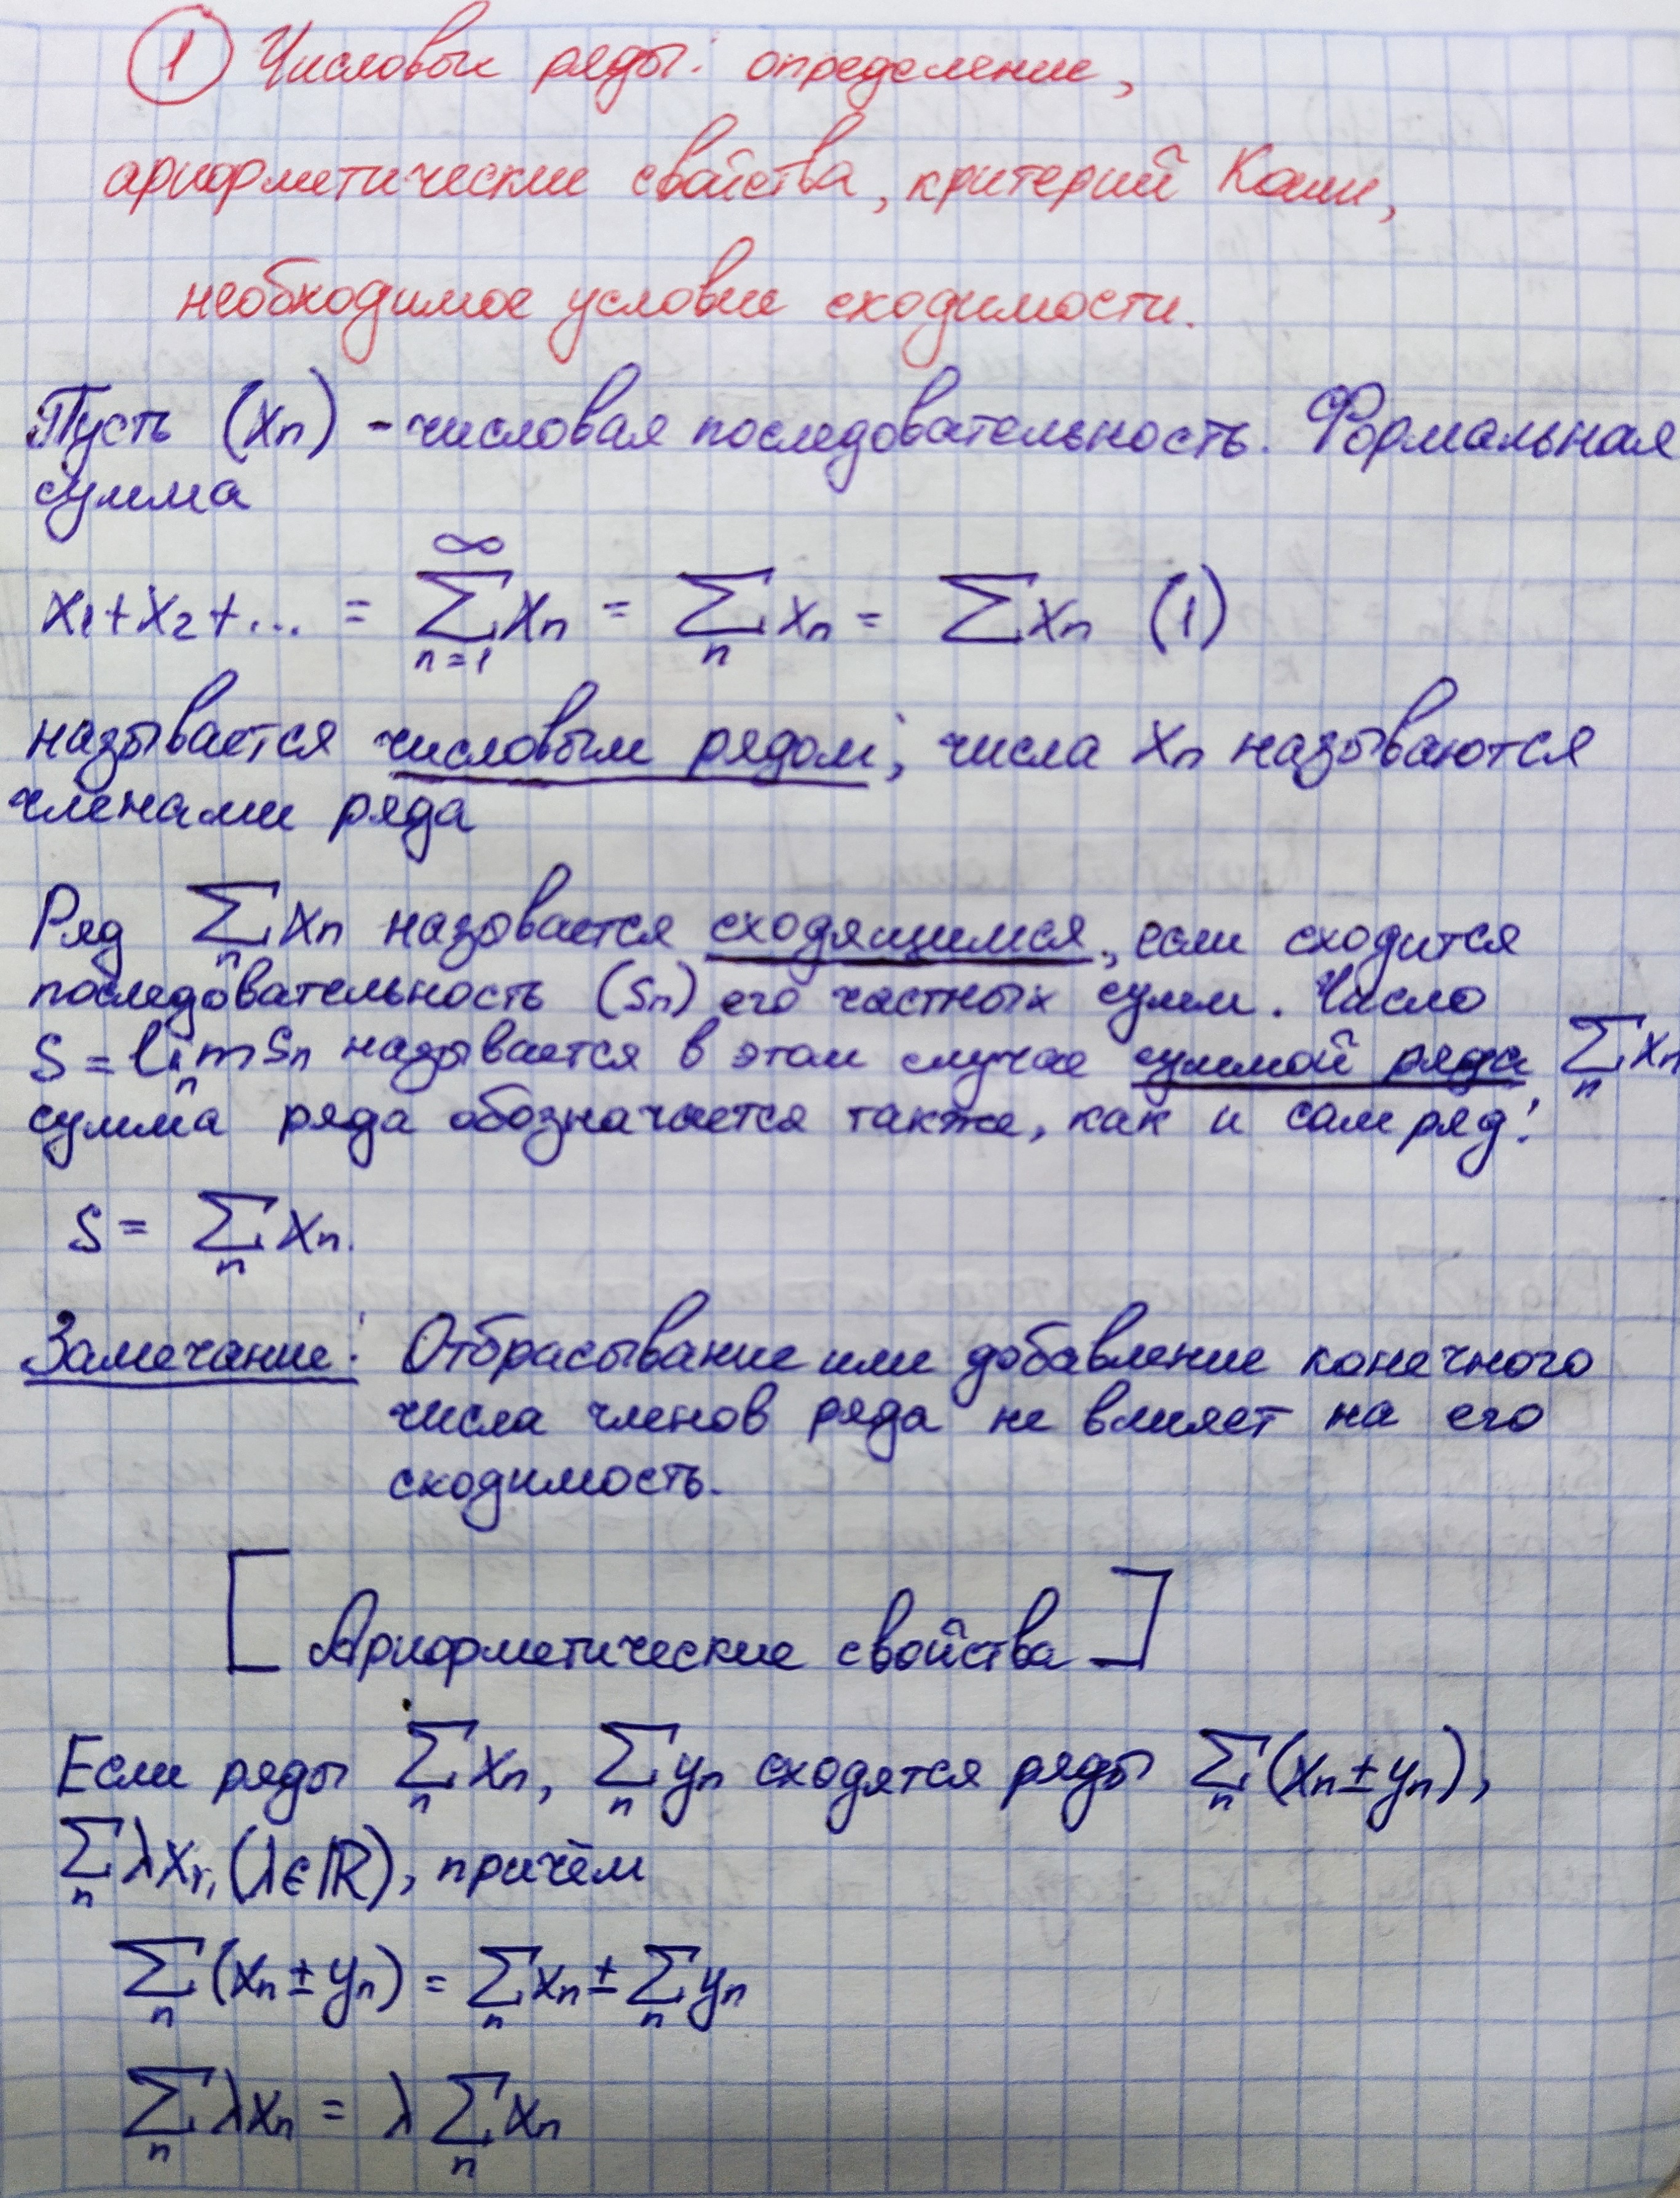 ① Числовые ряды: определение,
арифметические свойства, критерий Коши,
необходимое условие сходимости.
Пусть (xₙ) - числовая последовательность. Формальная
сумма
x₁+x₂+... = ∑_{n=1}^{∞} xₙ = ∑_n xₙ = ∑xₙ (1)
называется числовым рядом; числа xₙ называются
членами ряда
Ряд ∑_n xₙ называется сходящимся, если сходится
последовательность (sₙ) его частных сумм. Число
S = lim_n sₙ называется в этом случае суммой ряда ∑_n xₙ
сумма ряда обозначается также, как и сам ряд:
S = ∑_n xₙ.
Замечание: Отбрасывание или добавление конечного
числа членов ряда не влияет на его
сходимость.
[Арифметические свойства]
Если ряды ∑_n xₙ, ∑_n yₙ сходятся ряды ∑_n (xₙ ± yₙ),
∑_n λxₙ (λ∈ℝ), причём
∑_n (xₙ ± yₙ) = ∑_n xₙ ± ∑_n yₙ
∑_n λxₙ = λ ∑_n xₙ